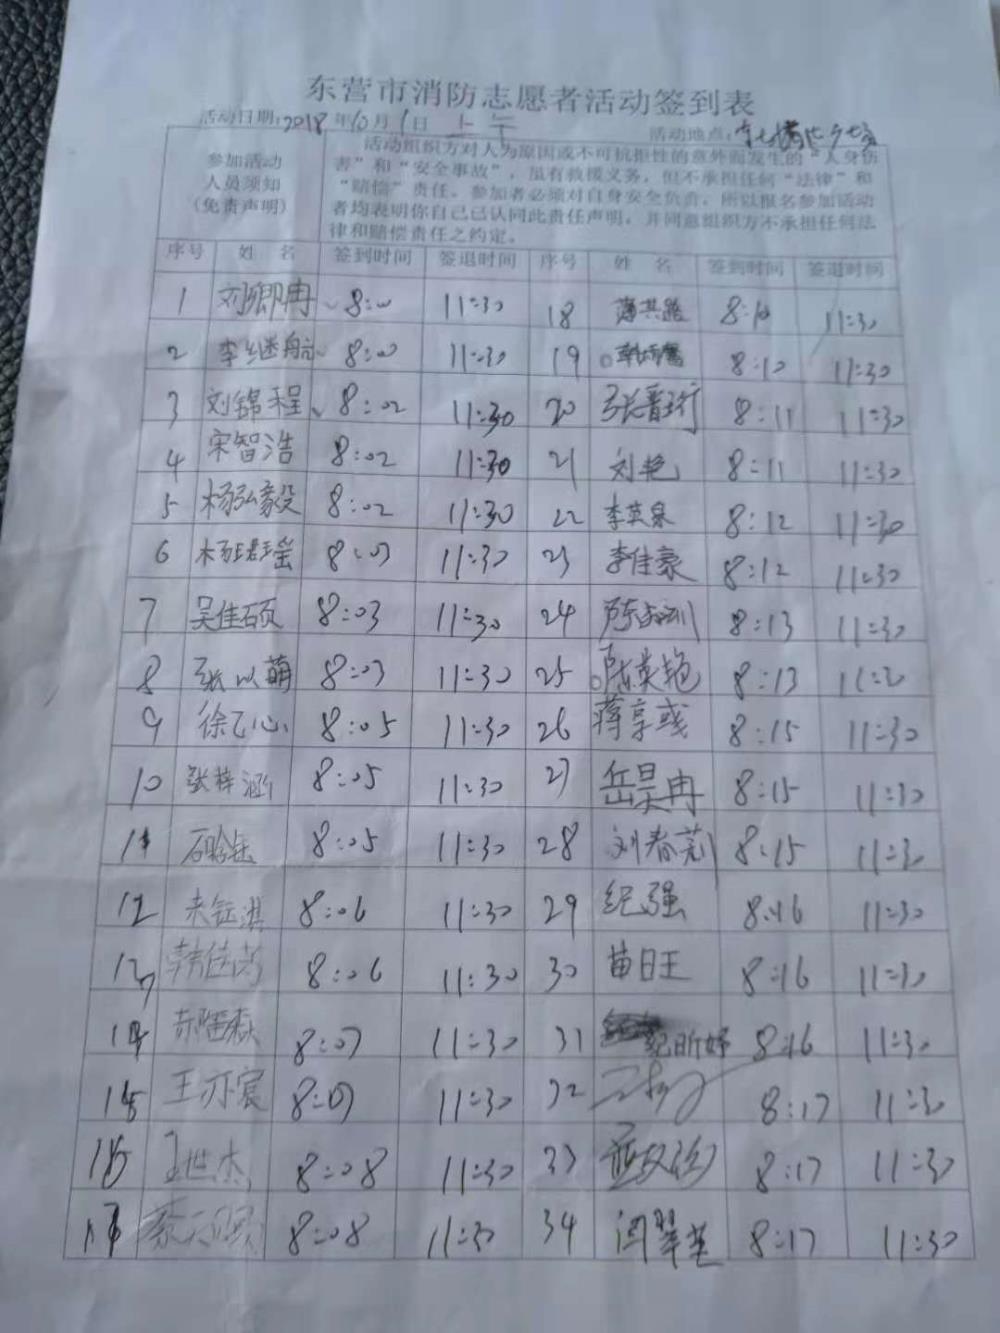 东营市消防志愿者活动签到表
活动日期:2018年10月1日 上午 活动地点:
参加活动
人员须知
(免责声明)
活动组织方对人为原因或不可抗拒性的意外而发生的“人身伤
害”和“安全事故”，虽有救援义务，但不承担任何“法律”和
“赔偿”责任。参加者必须对自身安全负责，所以报名参加活动
者均表明你自己已认同此责任声明，并同意组织方不承担任何法
律和赔偿责任之约定。
序号 姓 名 签到时间 签退时间 序号 姓 名 签到时间 签退时间
1 刘卿冉 8:00 11:30 18 8:10 11:30
2 李继航 8:00 11:30 19 8:10 11:30
3 刘锦程 8:02 11:30 20 张晋珩 8:11 11:30
4 宋智浩 8:02 11:30 21 刘艳 8:11 11:30
5 杨弘毅 8:02 11:30 22 李英泉 8:12 11:30
6 8:03 11:30 23 李佳豪 8:12 11:30
7 吴佳硕 8:03 11:30 24 8:13 11:30
8 张以萌 8:03 11:30 25 陈英艳 8:13 11:30
9 徐乙心 8:05 11:30 26 蒋享彧 8:15 11:30
10 张梓涵 8:05 11:30 27 岳昊冉 8:15 11:30
11 8:05 11:30 28 刘春莉 8:15 11:30
12 8:06 11:30 29 纪强 8:16 11:30
13 8:06 11:30 30 苗日王 8:16 11:30
14 8:07 11:30 31 纪昕妤 8:16 11:30
15 王亦宸 8:07 11:30 32 8:17 11:30
16 王世杰 8:08 11:30 33 8:17 11:30
17 8:08 11:30 34 闫翠英 8:17 11:30